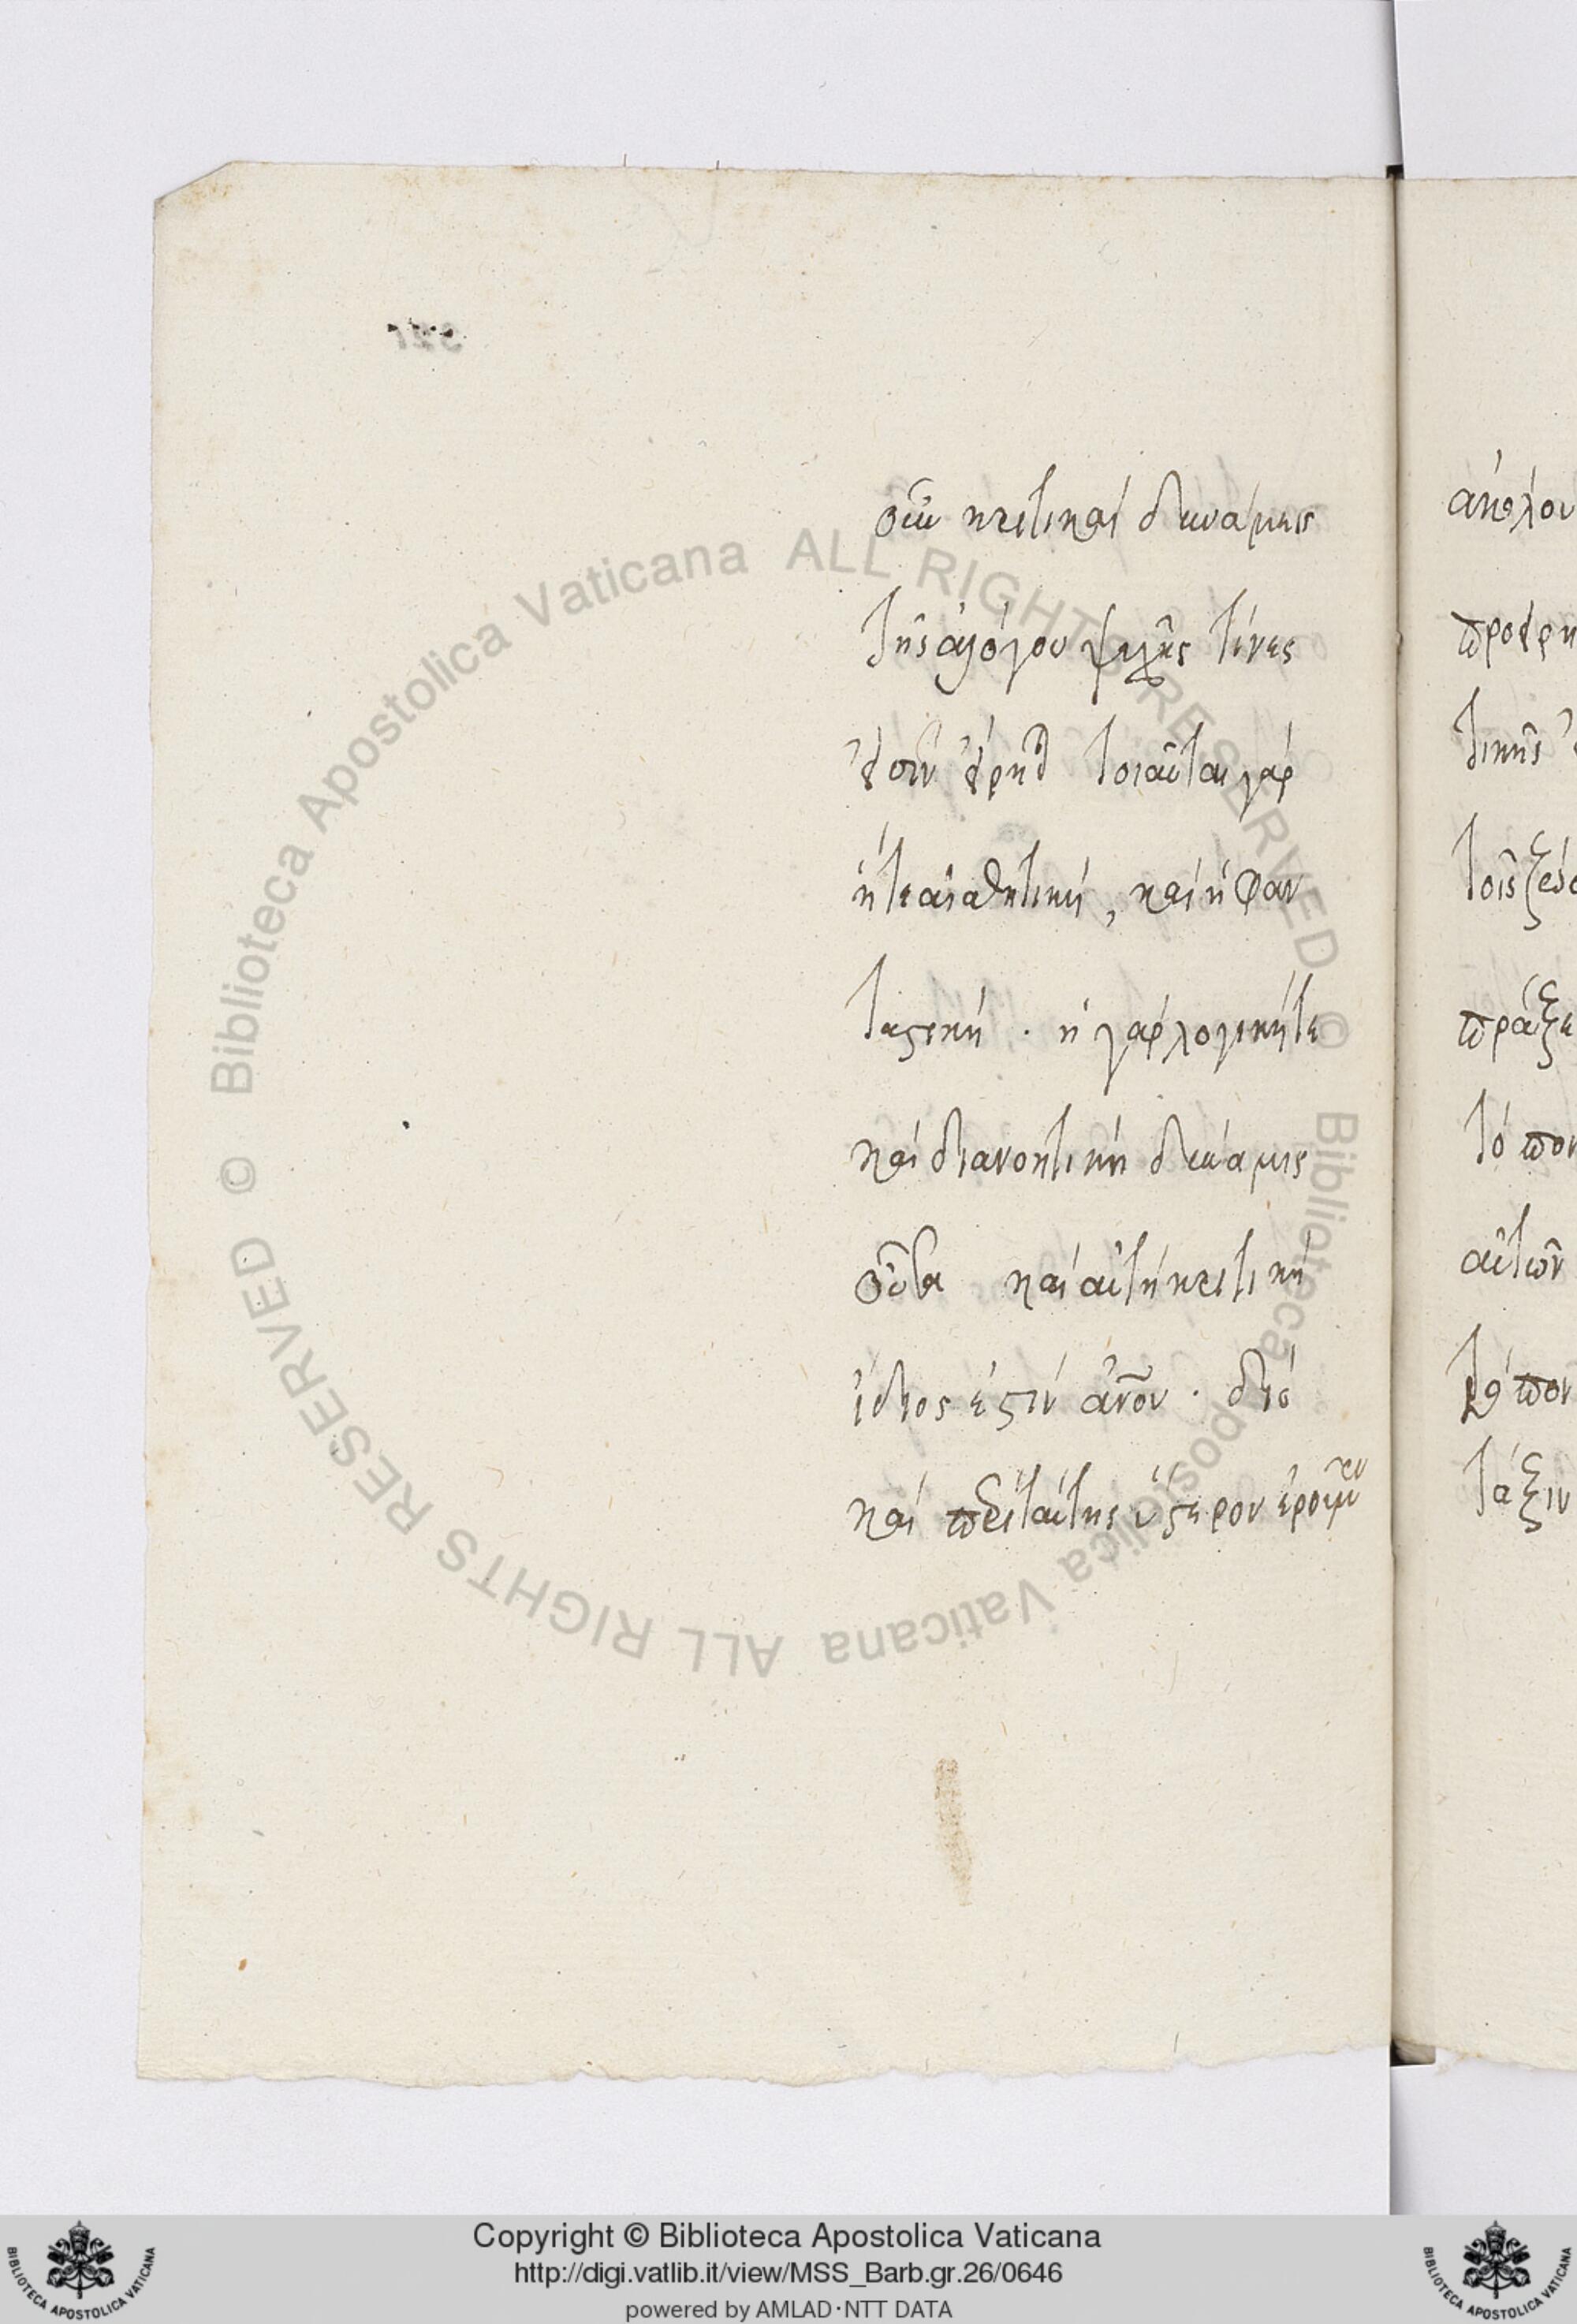 οὖν κριτικαὶ δυνάμεις
τῆς ἀλόγου ψυχῆς τίνες
εἰσὶν εἴρηται τοιαῦται γὰρ
ἥ τε αἰσθητική, καὶ ἡ φαν
ταστική · ἡ γὰρ λογική τε
καὶ διανοητικὴ δύναμις
οὖσα καὶ αὐτὴ κριτικὴ
ἴδιος ἐστὶν ἀνου · διὸ
καὶ περὶ ταύτης ὕστερον ἐροῦμεν
ἀκολου
προειρη
τικῆς
τοῖς ζώο
πράξε
τὸ ποι
αὐτῶν
τάξιν
© Biblioteca Apostolica Vaticana ALL RIGHTS RESERVED
© Biblioteca Apostolica Vaticana ALL RIGHTS RESERVED
Copyright © Biblioteca Apostolica Vaticana
http://digi.vatlib.it/view/MSS_Barb.gr.26/0646
powered by AMLAD·NTT DATA
BIBLIOTECA APOSTOLICA VATICANA
BIBLIOTECA APOSTOLICA VATICANA